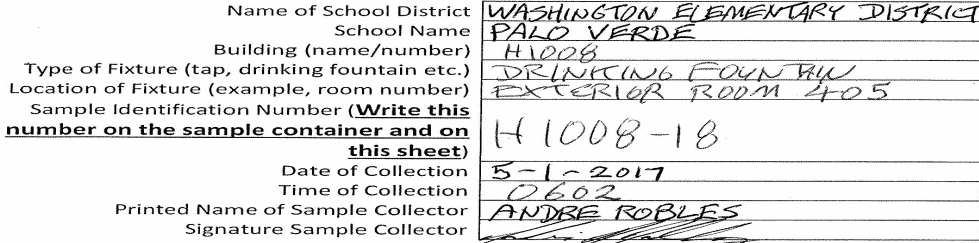 Name of School District WASHINGTON ELEMENTARY DISTRICT
School Name PALO VERDE
Building (name/number) H1008
Type of Fixture (tap, drinking fountain etc.) DRINKING FOUNTAIN
Location of Fixture (example, room number) EXTERIOR ROOM 405
Sample Identification Number (Write this
number on the sample container and on
this sheet) H1008-18
Date of Collection 5-1-2017
Time of Collection 0602
Printed Name of Sample Collector ANDRE ROBLES
Signature Sample Collector